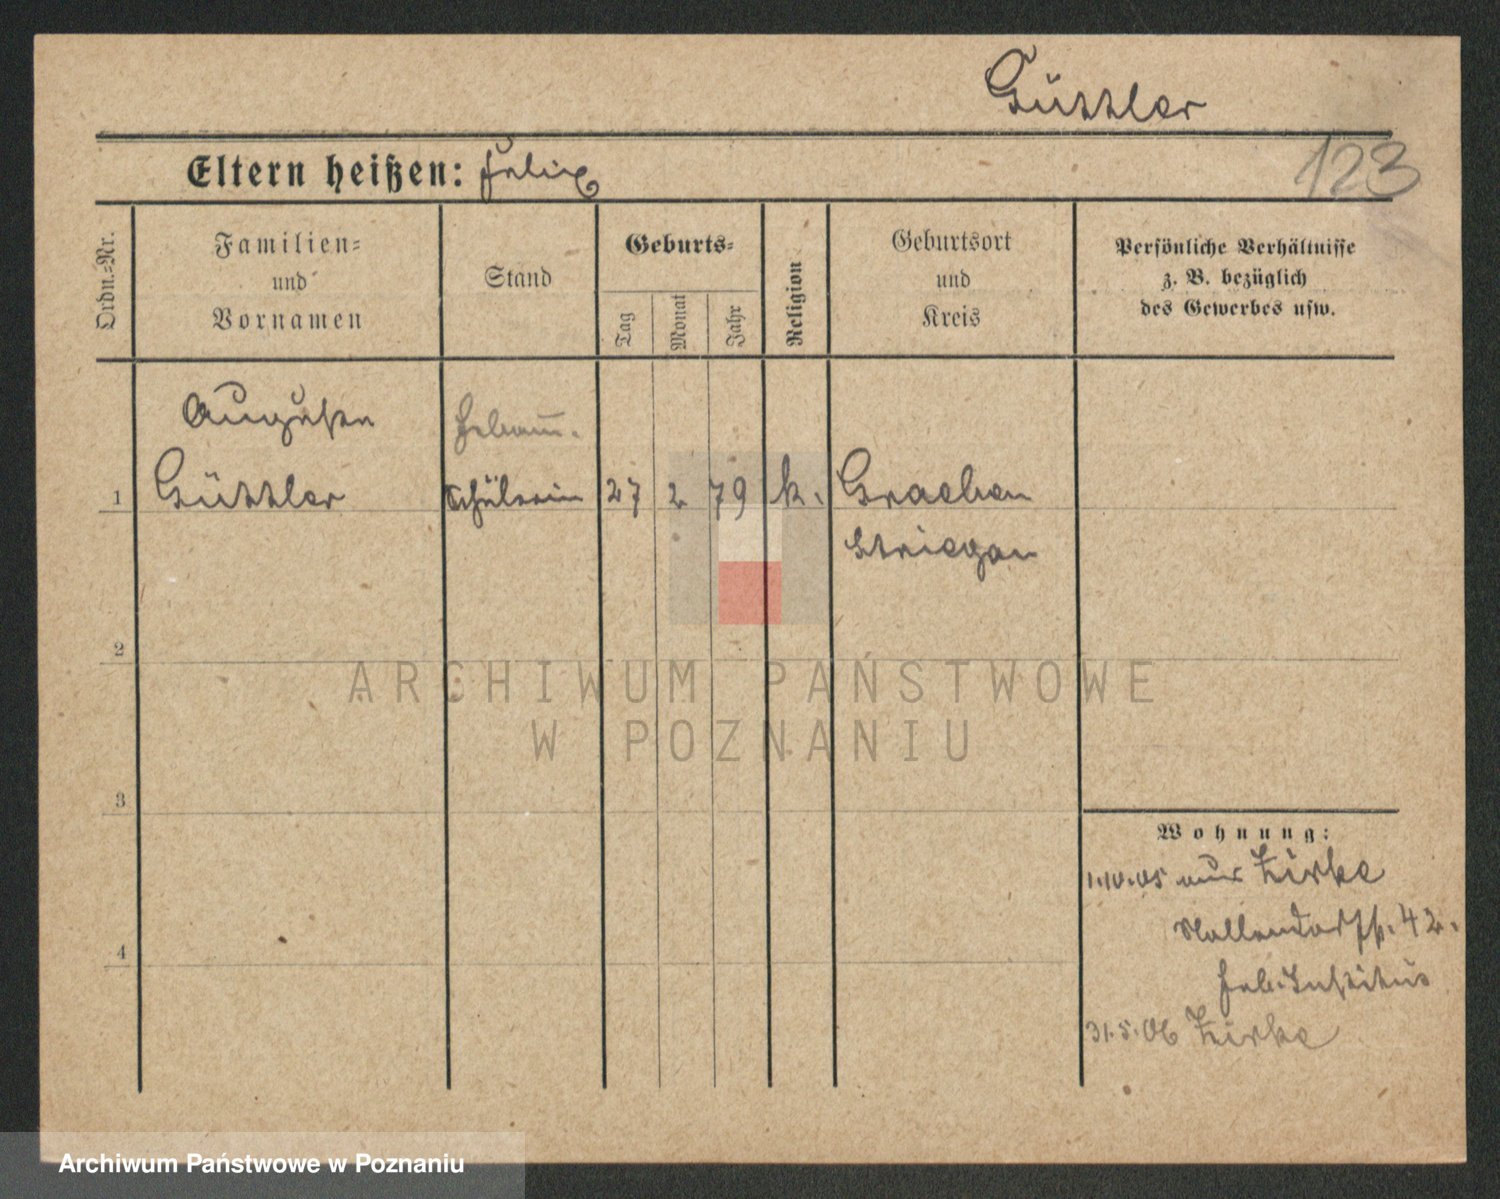 Güttler
Eltern heißen: Felix
123
Ordn.=Nr.
Familien=
und
Vornamen
Stand
Geburts=
Tag
Monat
Jahr
Religion
Geburtsort
und
Kreis
Persönliche Verhältnisse
z. B. bezüglich
des Gewerbes usw.
Auguste
Hebam̅.
1 Güttler schülerin 27 2 79 k. Graeben
Striegau
2
3
4
Wohnung:
1.10.05 aus Zirke
Nollendorfstr. 42.
Heb. Institut
31.5.06 Zirke
ARCHIWUM PAŃSTWOWE
W POZNANIU
Archiwum Państwowe w Poznaniu